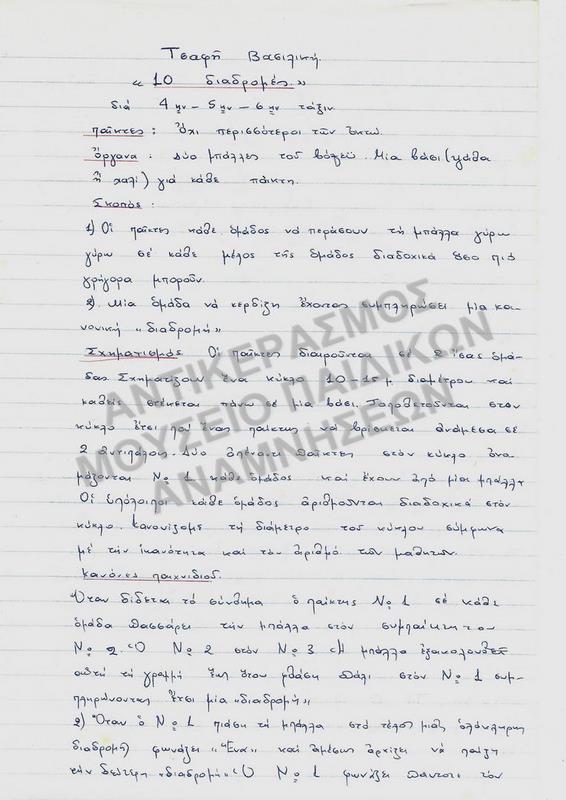 Τσαφῆ Βασιλική.
« 10 διαδρομές.»
διά 4ην - 5ην - 6ην τάξιν
παῖκτες : Ὄχι περισσότεροι τῶν ὀκτώ.
ὄργανα : Δύο μπάλλες τοῦ βόλεϋ. Μία βάσι (γάθα
ἤ χαλί) γιά κάθε παίκτη.
Σκοπός :
1) Οἱ παῖκτες κάθε ὁμάδος νά περάσουν τή μπάλλα γύρω
γύρω σέ κάθε μέλος τῆς ὁμάδος διαδοχικά ὅσο πιό
γρήγορα μποροῦν.
2) Μία ὁμάδα νά κερδίζη ἔχοντας συμπληρώσει μία κα-
νονική «διαδρομή»
Σχηματισμός Οἱ παῖκτες διαιροῦνται σέ 2 ἴσας ὁμά-
δας. Σχηματίζουν ἕνα κύκλο 10-15 μ διαμέτρου καί
καθείς στέκεται πάνω σέ μία βάσι. Τοποθετοῦνται στόν
κύκλο ἔτσι πού ἕνας παίκτης νά βρίσκεται ἀνάμεσα σέ
2 ἀντιπάλους. Δύο ἀπέναντι παῖκτες στόν κύκλο ὀνο-
μάζονται Νο 1 κάθε ὁμάδος καί ἔχουν ἀπό μία μπάλλα
Οἱ ὑπόλοιποι κάθε ὁμάδος ἀριθμοῦνται διαδοχικά στόν
κύκλο. Κανονίζομε τή διάμετρο τοῦ κύκλου σύμφωνα
μέ τήν ἱκανότητα καί τόν ἀριθμό τῶν μαθητῶν.
Κανόνες παιχνιδιοῦ.
Ὅταν δίδεται τό σύνθημα ὁ παίκτης Νο 1 σέ κάθε
ὁμάδα πασσάρει τήν μπάλλα στόν συμπαίκτη του
Νο 2. Ὁ Νο 2 στόν Νο 3 Ἡ μπάλλα ἐξακολουθεῖ
αὐτή τή γραμμή ἕως ὅτου φθάση πάλι στόν Νο 1 συμ-
πληρώνοντας ἔτσι μία «διαδρομή»
2) Ὅταν ὁ Νο 1 πιάση τή μπάλλα στό τέλος μιᾶς ὁλόκληρης
διαδρομῆς φωνάζει «Ἕνα» καί ἀμέσως ἀρχίζει νά παίζη
τήν δεύτερη «διαδρομή» Ὁ Νο 1 φωνάζει πάντοτε τόν
ΑΝΤΙΚΕΡΑΣΜΟΣ
ΜΟΥΣΕΙΟ ΠΑΙΔΙΚΩΝ
ΑΝΑΜΝΗΣΕΩΝ